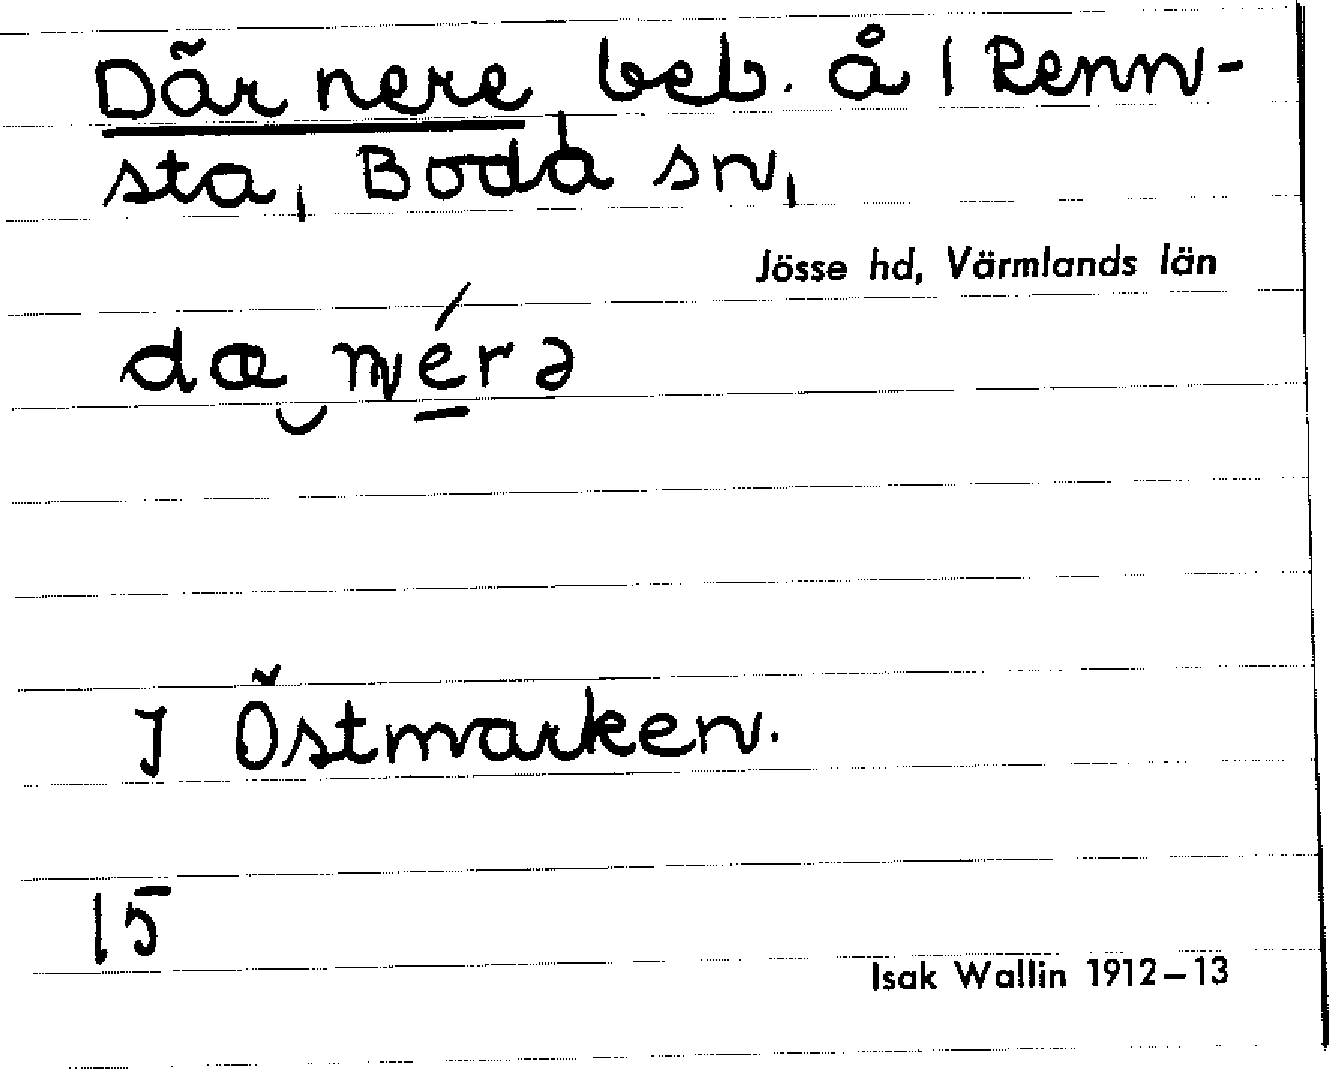 Där nere, beb. å 1 Renn-
sta, Boda sn,
Jösse hd, Värmlands län
dæ‿nérə
I Östmarken.
15
Isak Wallin 1912–13